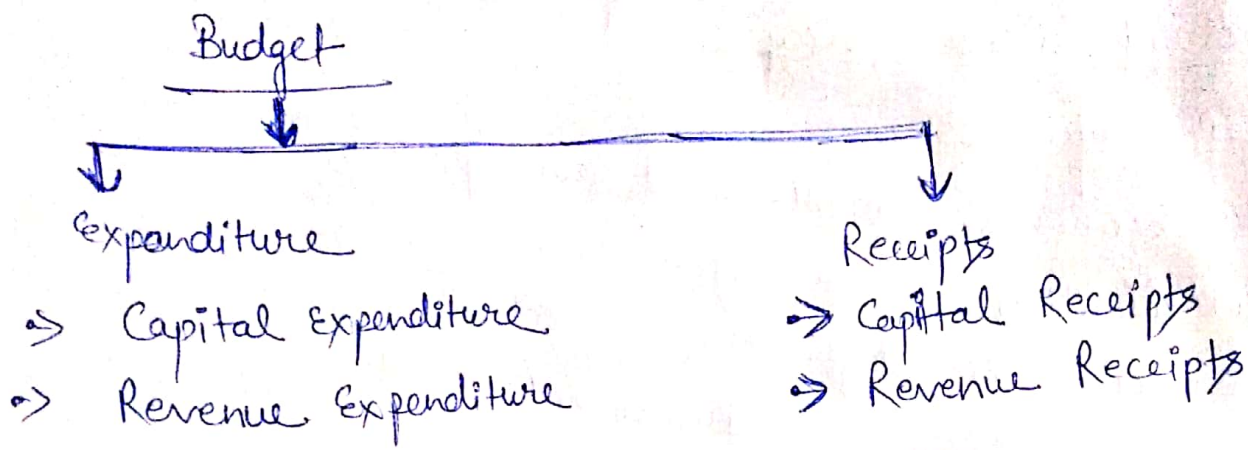 Budget
Expanditure
Receipts
Capital Expenditure
Revenue Expenditure
Capital Receipts
Revenue Receipts